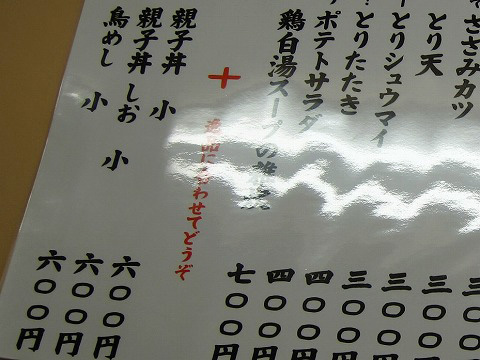 ささみカツ 三〇〇
とり天 三〇〇円
とりシュウマイ 三〇〇円
とりたたき 四〇〇円
ポテトサラダ 四〇〇円
鶏白湯スープの 七〇〇円
+ わせてどうぞ
親子丼 小 六〇〇円
親子丼 しお 小 六〇〇円
鳥めし 小 六〇〇円